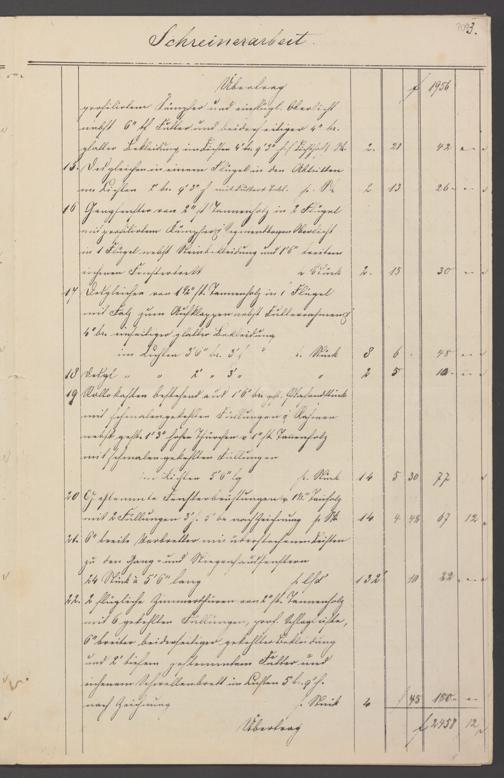 3.
Schreinerarbeit.
Übertrag f 1956
profilirtem Kämpfer und einflügl. Oberlicht
nebst 6" Futter und beiderseitiger 4" br.
glatter Bekleidung im Lichten 4' br. 9'3" h St. 2. 21 42
15. Desgleichen in einem Flügel in den Abtritten
im Lichten 2' br. 9'3" h p. St. 2 13 26
16 Gangfenster von 2" st Tannenholz in 2 Flügel
mit profilirtem Kämpfer Segmentbogen Oberlicht
in 1 Flügel nebst Steinbekleidung und 1'6" breitem
eichenen Fensterbrett a Stück 2. 15 30
17. Desgleichen von 1½" st. Tannenholz in 1 Flügel
mit Falz zum Aufklappen nebst Futterrahmen
4" br. einseitiger glatter Bekleidung
im Lichten 3'6" br. 3' " a. Stück 8 6 48
18 Desgl " " 2' " 3' " " 2 5 10
19 Rollokasten bestehend aus 1'6" br.
mit schmalen gekehlten Füllungen Rahmen
nebst 1'3" hohe Thürchen v 1" st. Tannenholz
mit schmalen gekehlten Füllungen
im Lichten 5'6" lg p. Stück 14 5 30 77
20 Gestemmte Fensterbrüstungen v 1¼"
mit 2 Füllungen 3' h. 5' br nach Zeichnung p St. 14 4 48 67 12
21. 6" breite mit
zu den Gang- und Stiegenhausfenstern
24 Stück à 5'6" lang p. lfd' 132' 10 22
22. 2 flüglige Zimmerthüren von 2" st. Tannenholz
mit 6 gekehlten Füllungen, prof. Schlagleiste,
6" breiter beiderseitiger gekehlter Bekleidung
und 2' tiefem gestemmtem Futter und
eichenem Schwellenbrett im Lichten 5' br. 9' h.
nach Zeichnung p. Stück 4 45 180
Übertrag f 2458 12